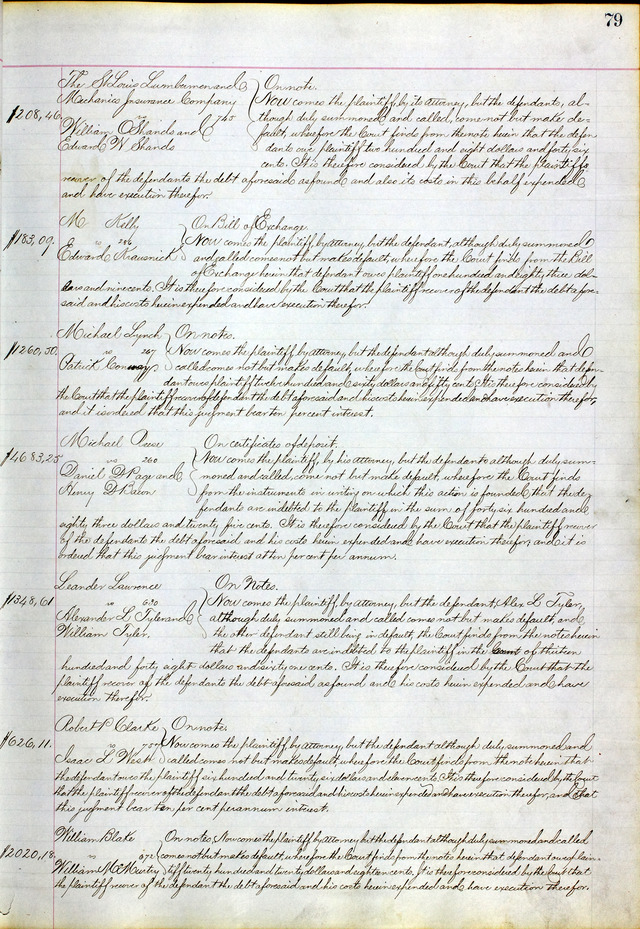 79
The St Louis Lumbermen and On note.
Mechanics Insurance Company Now comes the plaintiff, by its attorney, but the defendants, al-
$208,46 vs 765 though duly summoned and called, come not but make de-
William O Shands and fault, wherefore the Court finds from the note herein that the defen-
Edward W Shands dants owe plaintiff two hundred and eight dollars and forty six
cents. It is therefore considered by the Court that the plaintiff
recover of the defendants the debt aforesaid as found and also its costs in this behalf expended
and have execution therefor.
M Kelly On Bill of Exchange.
$183,09. vs 246 Now comes the plaintiff by attorney, but the defendant, although duly summoned
Edward Krausnick and called comes not but makes default, wherefore the Court finds from the Bill
of Exchange herein that defendant owes plaintiff one hundred and eighty three dol-
lars and nine cents. It is therefore considered by the Court that the plaintiff recover of the defendant the debt afore-
said and his costs herein expended and have execution therefor.
Michael Lynch On notes.
$1260,50. vs 247 Now comes the plaintiff by attorney, but the defendant although duly summoned and
Patrick Conway called comes not but makes default, wherefore the Court finds from the notes herein that defen-
dant owes plaintiff twelve hundred and sixty dollars and fifty cents. It is therefore considered by
the Court that the plaintiff recover of defendant the debt aforesaid and his costs herein expended and have execution therefor,
and it is ordered that this judgment bear ten per cent interest.
Michael On certificates of deposit.
$4683,25 vs 260 Now comes the plaintiff, by his attorney, but the defendants although duly sum-
Daniel D Page and moned and called, come not but make default, wherefore the Court finds
Henry D Bacon from the instruments in writing on which this action is founded that the de
fendants are indebted to the plaintiff in the sum of forty six hundred and
eighty three dollars and twenty five cents. It is therefore considered by the Court that the plaintiff recover
of the defendants the debt aforesaid and his costs herein expended and have execution therefor, and it is
ordered that this judgment bear interest at ten per cent per annum.
Leander Lawrence On Notes.
$1348,61 vs 630 Now comes the plaintiff by attorney, but the defendant, Alex L Tyler,
Alexander L Tyler and although duly summoned and called comes not but makes default, and
William Tyler. the other defendant still being in default, the Court finds from the notes herein
that the defendants are indebted to the plaintiff in the sum of thirteen
hundred and forty eight dollars and sixty one cents. It is therefore considered by the Court that the
plaintiff recover of the defendants the debt aforesaid as found and his costs herein expended and have
execution therefor.
Robert P Clarke On note.
$626,11. vs Now comes the plaintiff by attorney, but the defendant although duly summoned and
Isaac L West. called comes not but makes default, wherefore the Court finds from the note herein that
the defendant owes the plaintiff six hundred and twenty six dollars and eleven cents. It is therefore considered by the Court
that the plaintiff recover of the defendant the debt aforesaid and his costs herein expended and have execution therefor, and that
this judgment bear ten per cent per annum interest.
William Blake On notes, Now comes the plaintiff by attorney, but the defendant although duly summoned and called
$2020,18. vs 672 comes not but makes default, wherefore the Court finds from the notes herein that defendant owes plain-
William McMurtry tiff twenty hundred and twenty dollars and eighteen cents. It is therefore considered by the Court that
the plaintiff recover of the defendant the debt aforesaid and his costs herein expended and have execution therefor.